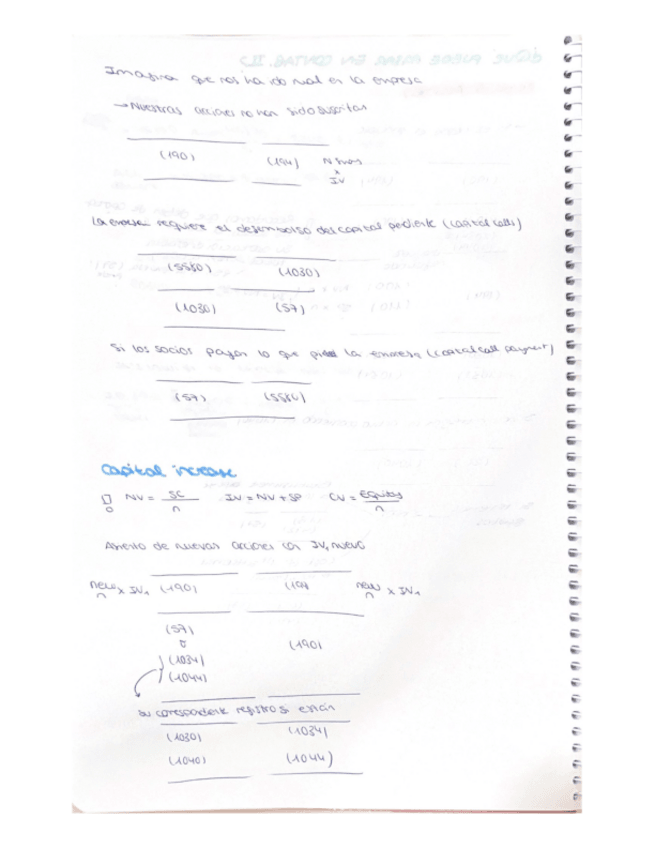 Imagina que nos ha ido mal en la empresa
→ Nuestras acciones no han sido suscritas
(190) (194) N shares
x
IV
La empresa requiere el desembolso del capital pendiente (capital calls)
(5580) (1030)
(1030) (57)
Si los socios pagan lo que pide la empresa (capital call payment)
(57) (5580)
Capital increase
NV = SC / n IV = NV + SP CV = Equity / n
Aumento de nuevas acciones con IV, nuevo
new n x IV₁ (190) (194 new n x IV₁
(57)
o (190)
(1034)
(1044)
su correspondiente registro si están
(1030) (1034)
(1040) (1044)